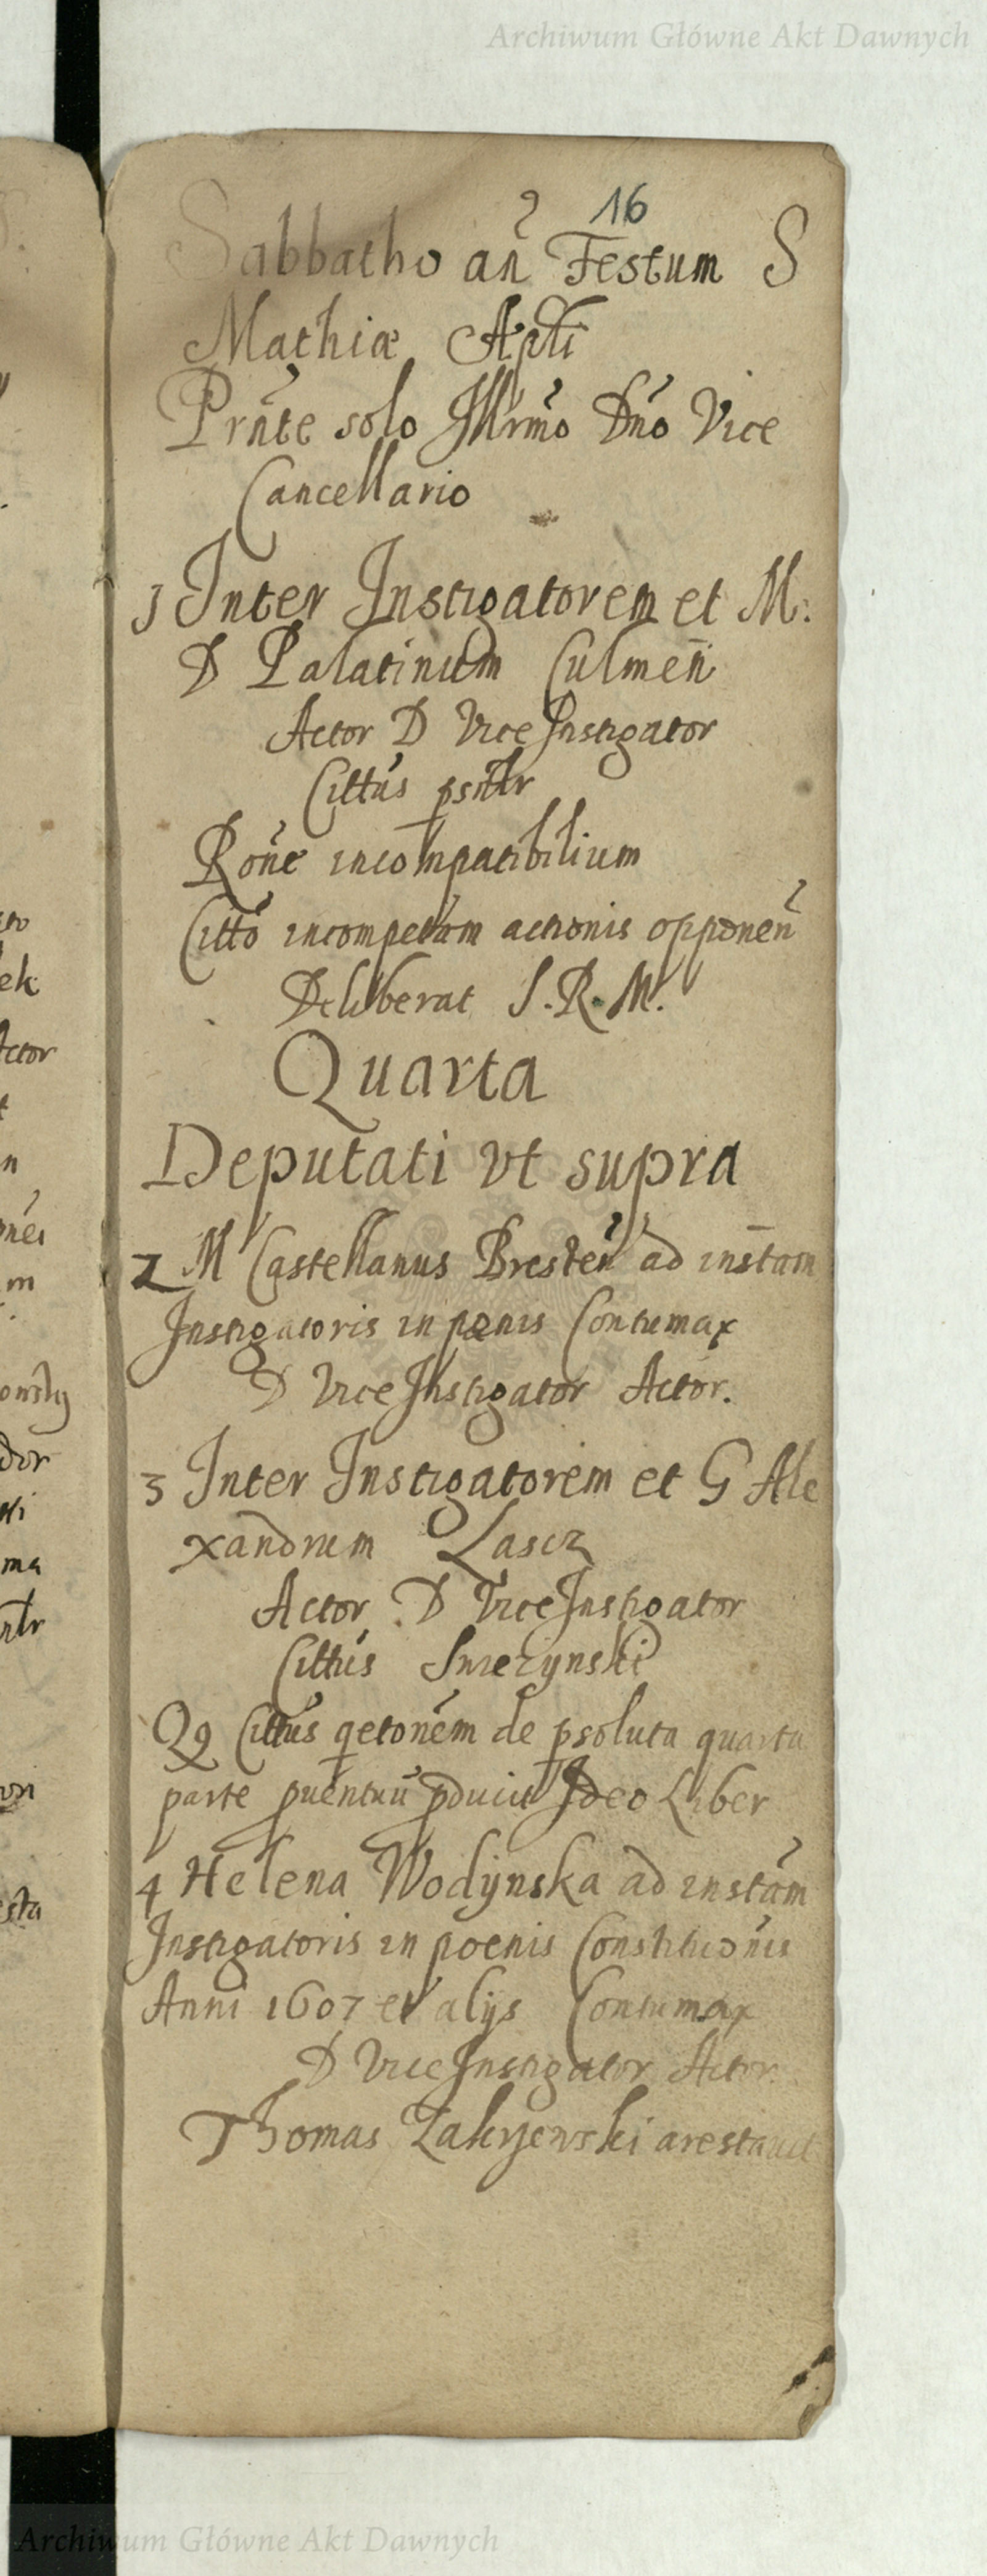 Archiwum Główne Akt Dawnych
16
Sabbatho an̄ Festum S
Mathiæ Apłi
Prn̄te solo Illrmo Dno Vice
Cancellario
1 Inter Instigatorem et M:
D Palatinum Culmen̄
Actor D ViceInstigator
Cittus psnltr
Rone incompatibilium
Citto incompetam actionis opponen̄
Deliberat S. R. M.
Quarta
Deputati vt supra
2 M Castellanus Bresten̄ ad instam
Instigatoris in pœnis Contumax
D ViceInstigator Actor.
3 Inter Instigatorem et G Ale
xandrum Lascz
Actor D ViceInstigator
Cittus Smezynski
Qꝫ Cittus qetonem de psoluta quarta
parte puentuū pducit Ideo Liber
4 Helena Wodÿnska ad instam
Instigatoris in poenis Constitucionis
Anni 1607 et alÿs Contumax
D ViceInstigator Actor.
Thomas Zakrzewski arestauit
sto
ek
Actor
t
n
m
dor
ma
sta
Archiwum Główne Akt Dawnych